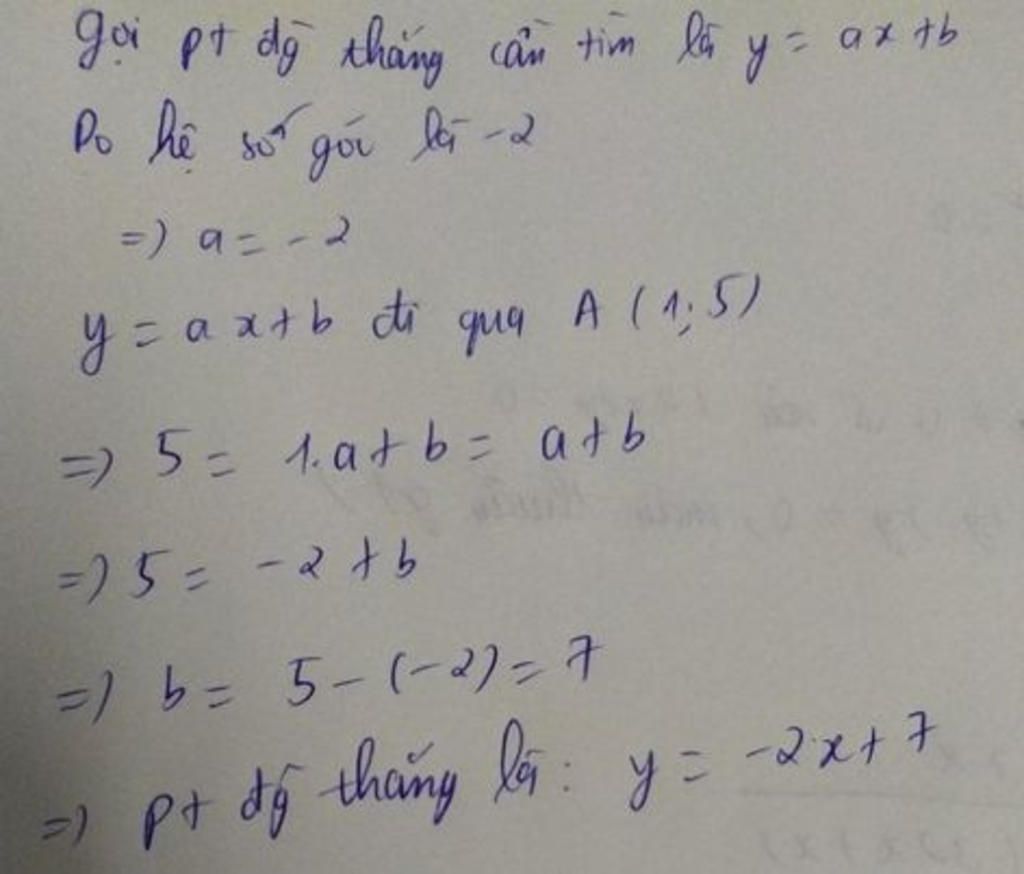 Gọi pt đg thẳng cần tìm là y = ax + b
Do hệ số góc là -2
=> a = -2
y = ax + b đi qua A (1; 5)
=> 5 = 1.a + b = a + b
=> 5 = -2 + b
=> b = 5 - (-2) = 7
=> pt đg thẳng là: y = -2x + 7